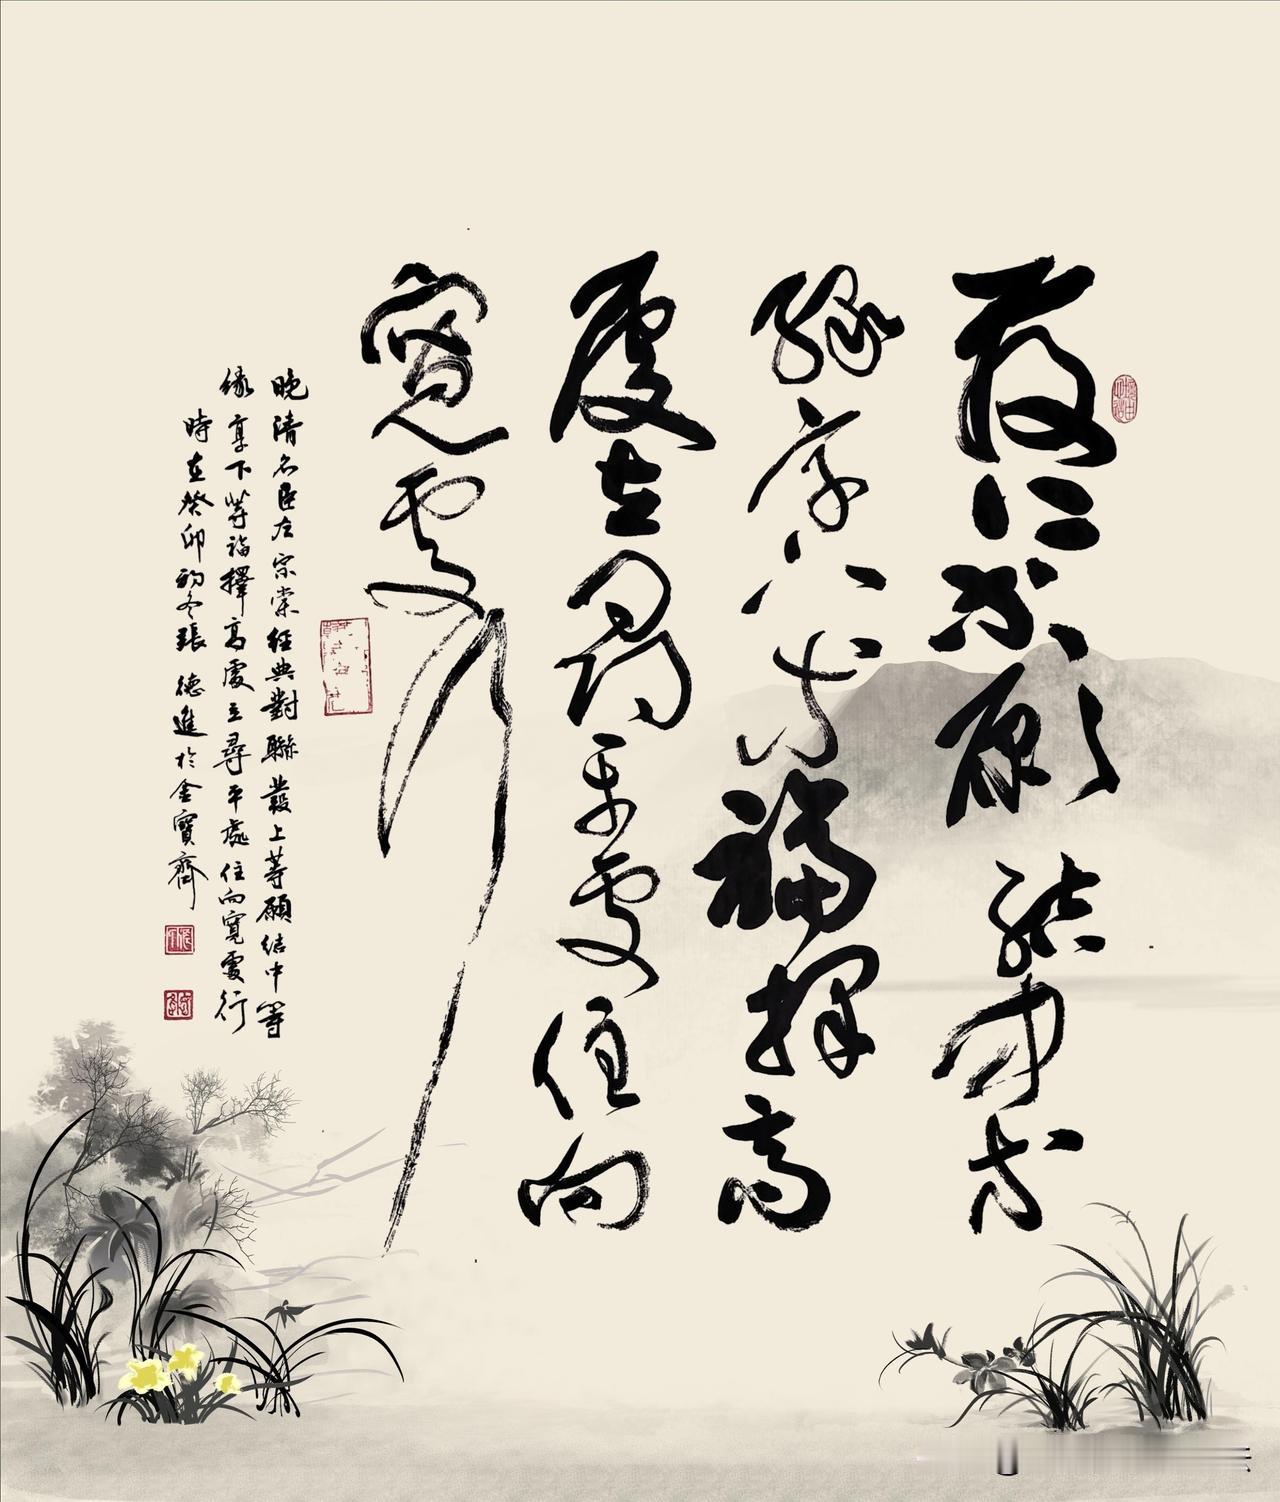 發上等願結中等
緣享下等福擇高
處立尋平處住向
寬處行
晚清名臣左宗棠經典對聯發上等願結中等
緣享下等福擇高處立尋平處住向寬處行
時在癸卯初冬張德進於金寶齋